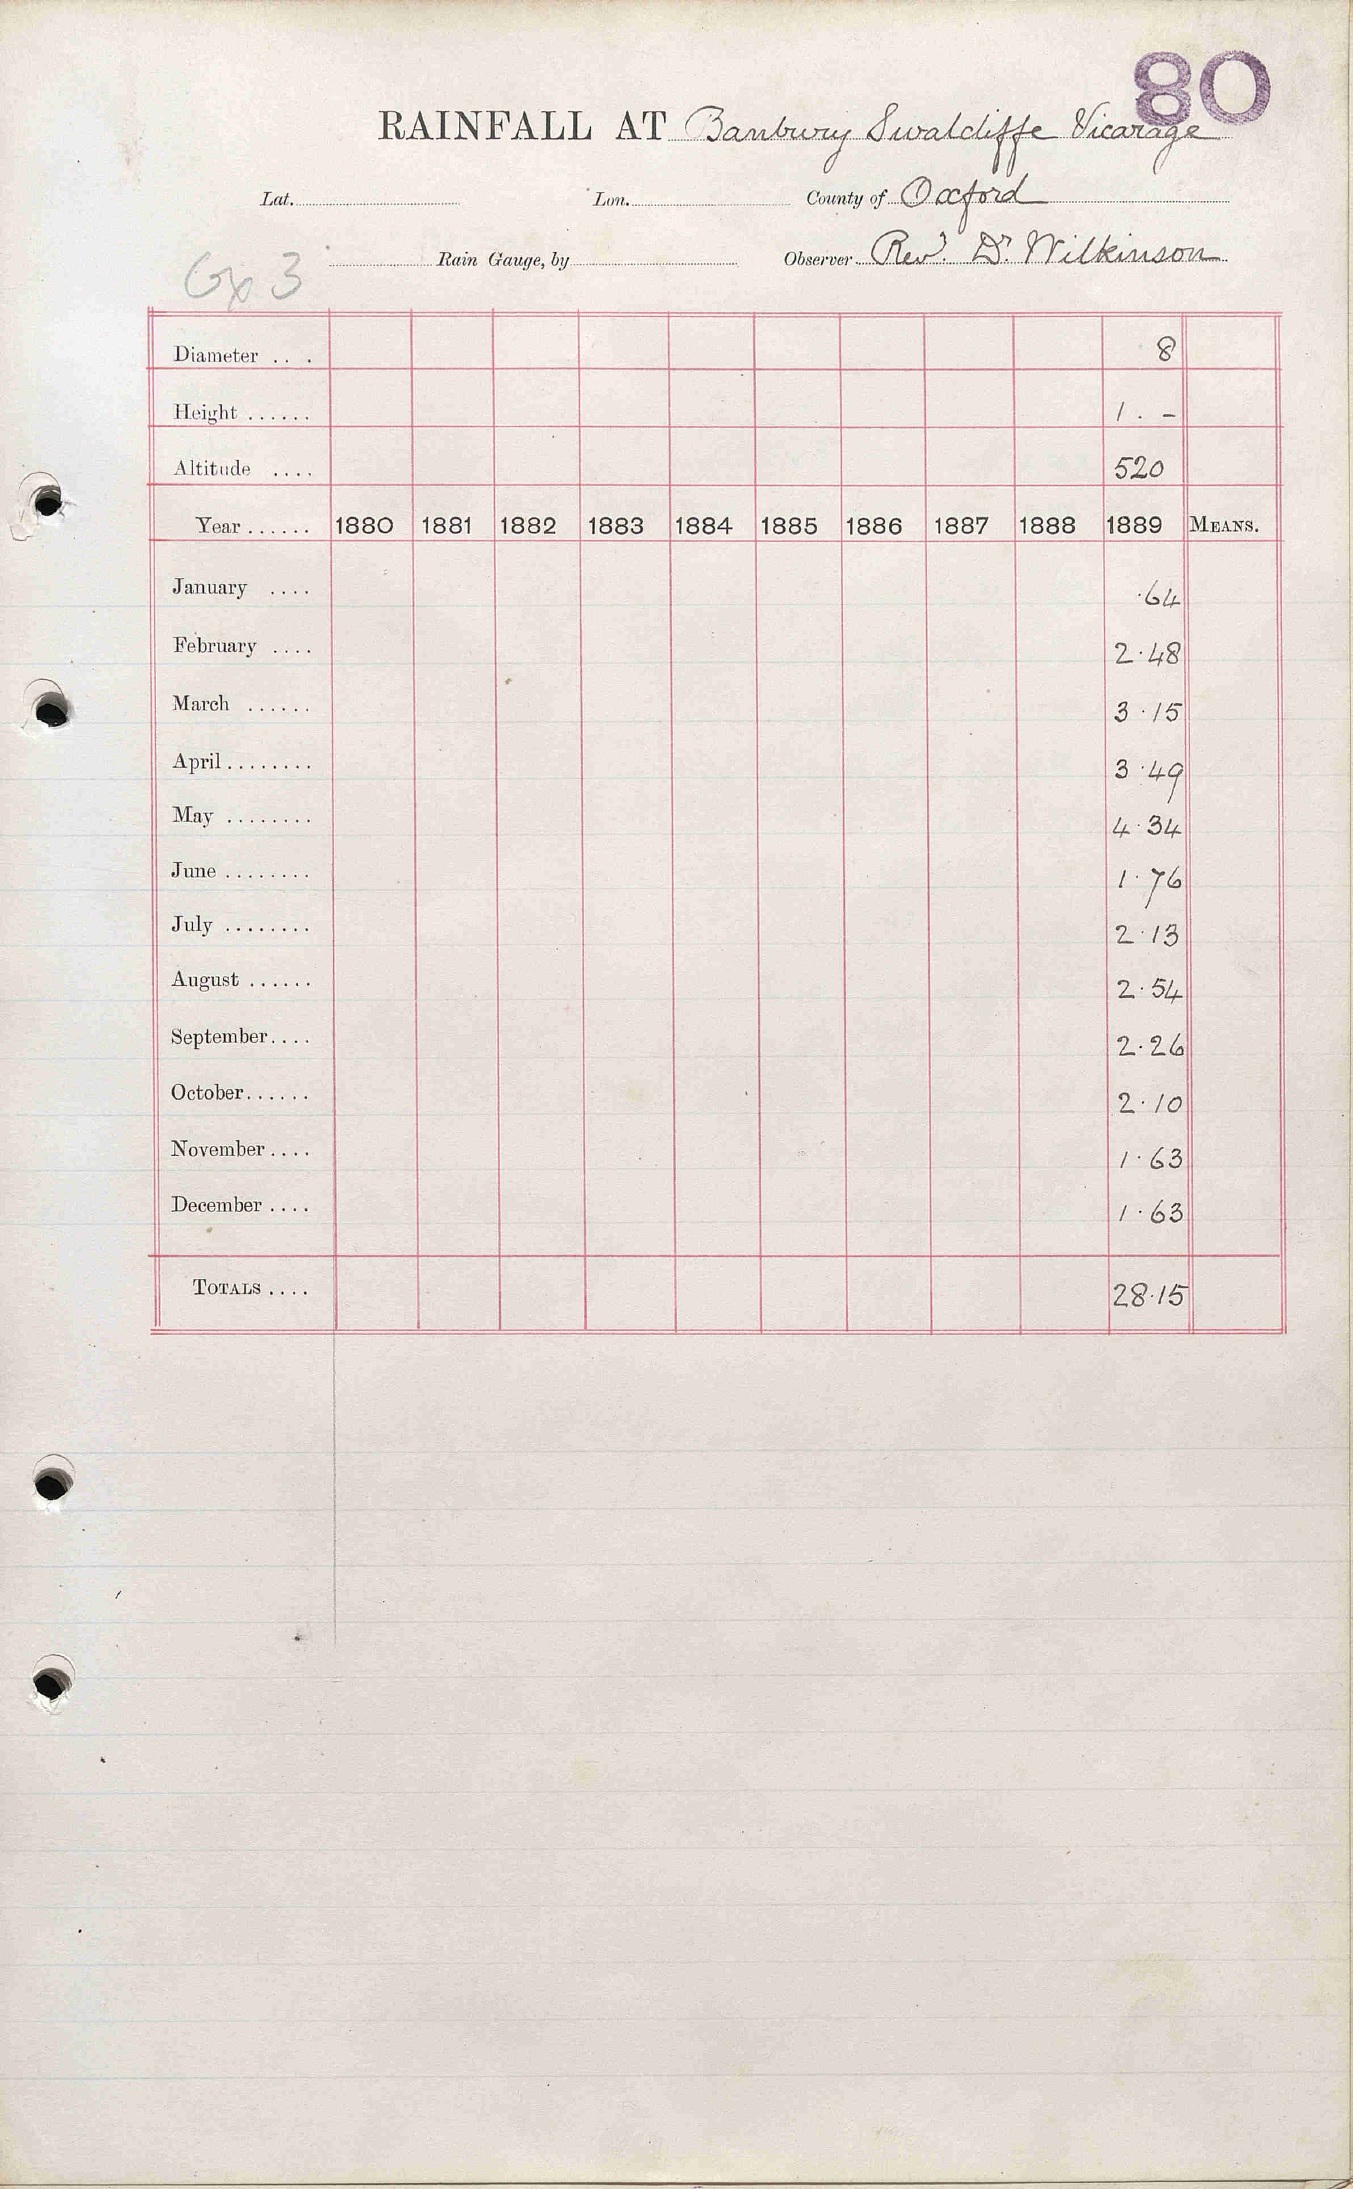 80
RAINFALL AT Banbury Swalcliffe Vicarage
Lat. Lon. County of Oxford
Rain Gauge, by Observer Revd. Dr. Wilkinson
Ox 3
Diameter . . . 8
Height . . . . . . 1 . -
Altitude . . . . 520
Year . . . . . . 1880 1881 1882 1883 1884 1885 1886 1887 1888 1889 MEANS.
January . . . . ·64
February . . . . 2·48
March . . . . . . 3·15
April . . . . . . . . 3·49
May . . . . . . . . 4·34
June . . . . . . . . 1·76
July . . . . . . . . 2·13
August . . . . . . 2·54
September . . . . 2·26
October . . . . . . 2·10
November . . . . 1·63
December . . . . 1·63
TOTALS . . . . 28·15